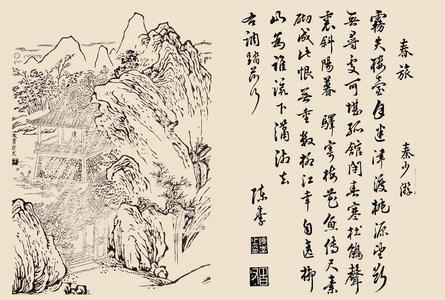 春旅 秦少游
霧失樓臺月迷津渡桃源望斷
無尋處可堪孤館閉春寒杜鵑聲
裏斜陽暮 驛寄梅花魚傳尺素
砌成此恨無重數郴江幸自遶郴
山為誰流下瀟湘去
右調踏莎行